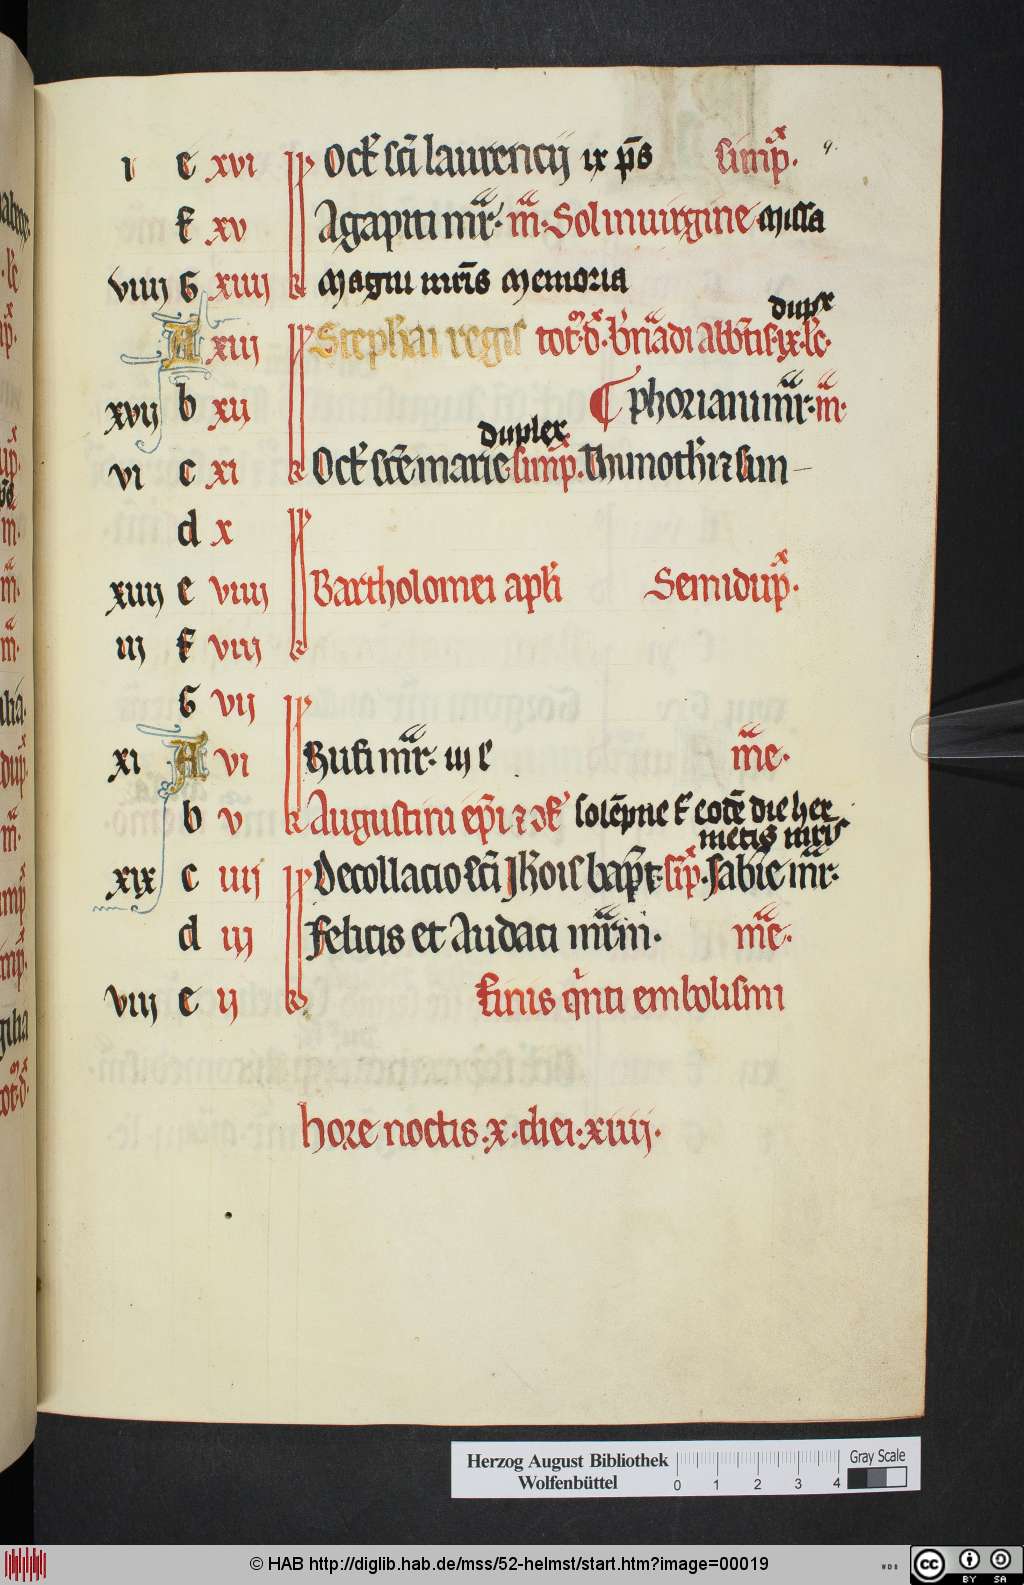 9.
i e xvi kl Octꝭ sc̄i laurencij ix p̄s simpx.
f xv Agapiti mr̄. m̄. Sol in uirgine missa
viiij G xiiij kl magni mr̄is memoria
dupx
A xiij Stephani regis tot d. b'nadi abb̄tis. ix. lc̄.
xvij b xij phoriani mr̄. m̄.
duplex
vi c xi kl Oct sc̄e marie. simpx. Thimothi ⁊ sim
d x
xiiij e viiij Bartholomei apl̄i Semidupx.
iij f viij kl
G vij
xi A vi Rufi mr̄. iij l m̄e.
b v kl Augustini ep̄i ⁊ ɔf solēpne f eodē die her
metis mr̄is
xix c iiij Decollacio sc̄i Joh̄ois bapt. sipx. Sabīe mr̄.
d iij felicis et Audacti mr̄m. m̄e.
viij e ij kl finis q̄nti embolismi
hore noctis. x. diei. xiiij.
Herzog August Bibliothek
Wolfenbüttel
0 1 2 3 4
Gray Scale
© HAB http://diglib.hab.de/mss/52-helmst/start.htm?image=00019
WDB
cc BY SA